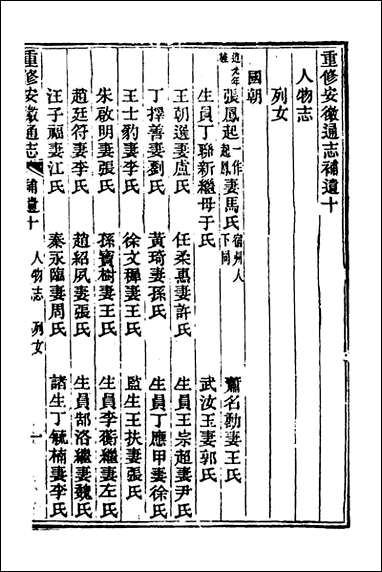 重修安徽通志補遺十
人物志
列女
國朝
道光年旌 張鳳起一作起鳳妻馬氏宿州人下同 蕭名勳妻王氏
生員丁聯新繼母于氏 武汝玉妻郭氏
王朝選妻盧氏 任柔惠妻許氏 生員王宗超妻尹氏
丁擇善妻劉氏 黃琦妻孫氏 生員丁應甲妻徐氏
王士豹妻李氏 徐文穉妻王氏 監生王扶妻張氏
朱啟明妻張氏 孫寶樹妻王氏 生員李蘅繼妻左氏
趙廷符妻李氏 趙紹夙妻張氏 生員郜洛繼妻魏氏
汪子福妻江氏 秦永臨妻周氏 諸生丁毓楠妻李氏
重修安徽通志 補遺十 人物志 列女 一